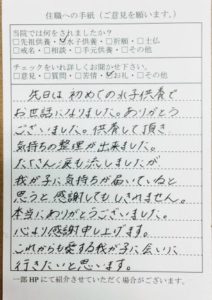 住職への手紙（ご意見を願います。）
当院では何をされましたか？
□先祖供養・☑水子供養・□祈願・□十仏
□戒名・□相談・□手元供養・□その他
チェックをいれ詳しくお聞かせ下さい。
□意見・□質問・□苦情・☑お礼・□その他
先日は初めての水子供養で
お世話になりました。ありがとう
ございました。供養して頂き
気持ちの整理が出来ました。
たくさん涙も流しましたが
我が子に気持ちが届いていると
思うと感謝してもしきれません。
本当にありがとうございました。
心より感謝申し上げます。
これからも愛する我が子に会いに
行きたいと思います。
一部HPにて紹介させていただく場合がございます。